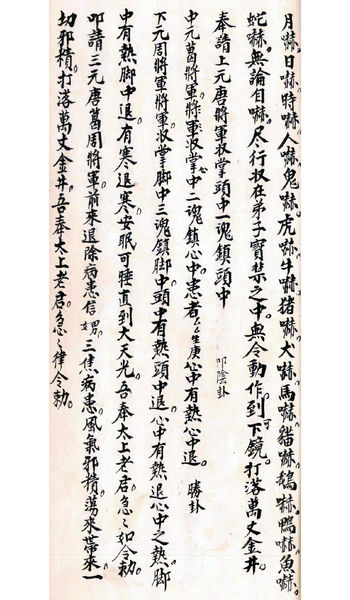 月嚇。日嚇。時嚇。人嚇。鬼嚇。虎嚇。牛嚇。猪嚇。犬嚇。馬嚇。貓嚇。鵝嚇。鴨嚇。魚嚇。
蛇嚇。無論自嚇。尽行收在弟子寶禁之中。無令動作。到下鏡。打落萬丈金井。
奉請上元唐將軍收掌頭中一魂鎮頭中 叩陰卦
中元葛將軍將軍收掌心中二魂鎮心中。患者厶厶生庚心中有熱心中退。 勝卦
下元周將軍將軍收掌脚中三魂鎮脚中。頭中有熱頭中退。心中有熱退心中之熱。脚
中有熱脚中退。有寒退寒。安眠可睡直到大天光。吾奉太上老君。急々如令勅。
叩請三元唐葛周將軍。前來退除病患信男。三焦病患。風氣邪積。蕩來帶來。一
切邪積。打落萬丈金井。吾奉太上老君。急々律令勅。